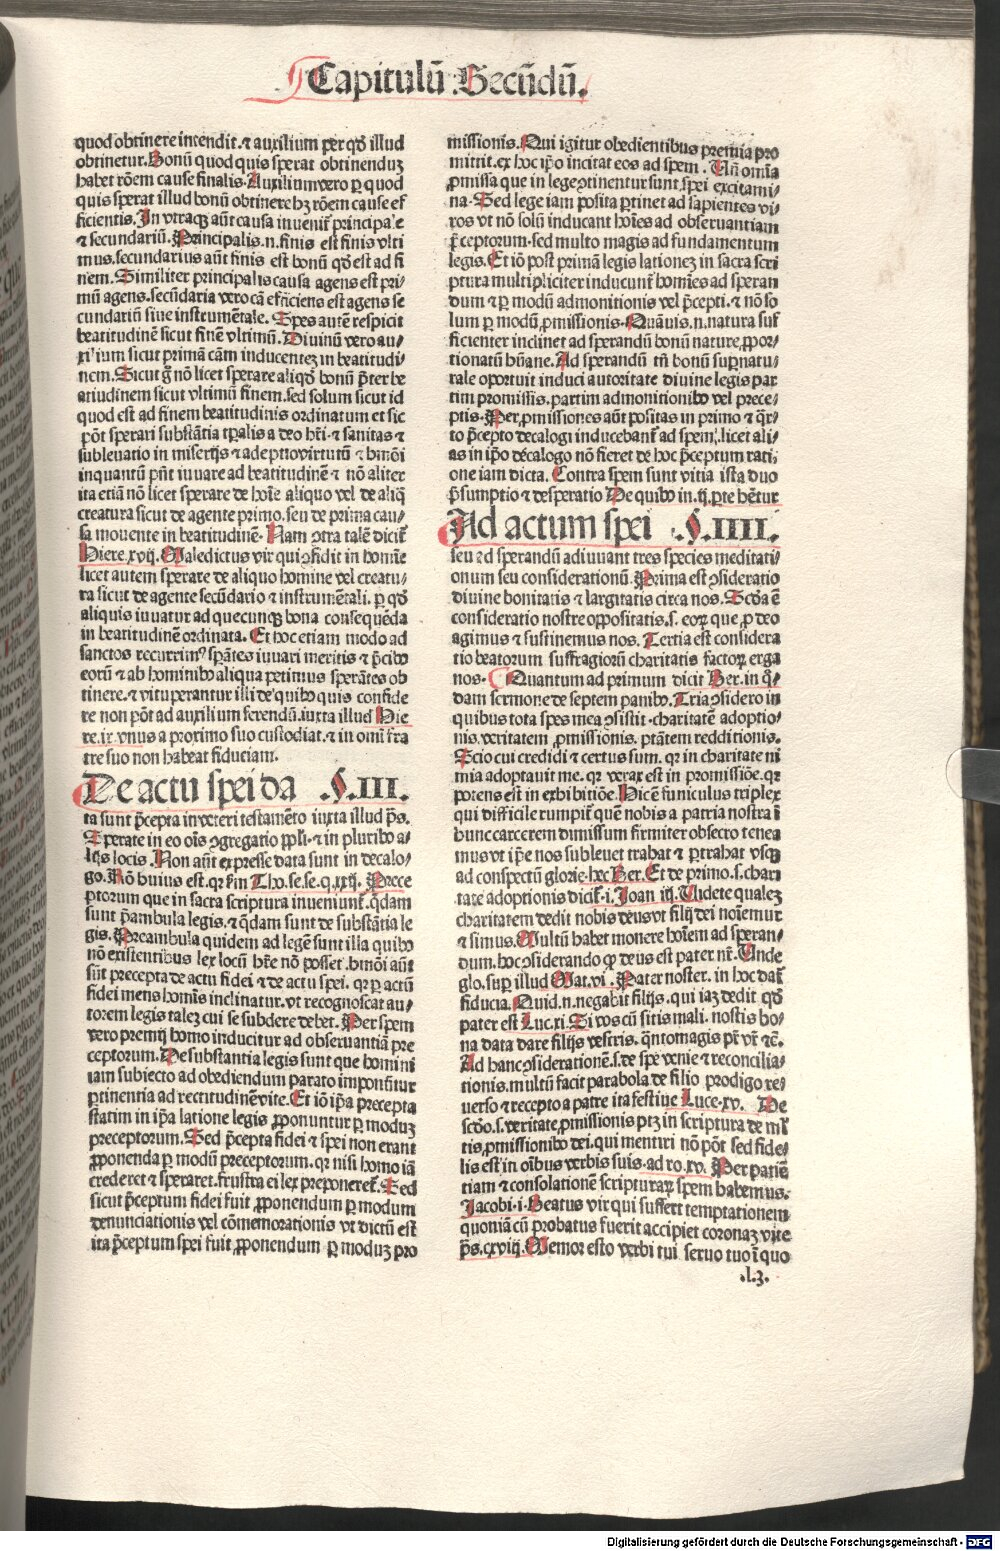 Capitulū Secūdū.
quod obtinere intendit. ⁊ auxilium per qđ illud
obtinetur. Bonū quod quis sperat obtinenduꝫ
habet rōem cause finalis. Auxilium vero ꝑ quod
quis sperat illud bonū obtinere hꝫ rōem cause ef
ficientis. In vtraqꝫ aūt causa inuenit̄ principale
⁊ secundariū. Principalis .n. finis est finis vlti
mus. secundarius aūt finis est bonū qđ est ad fi
nem. Similiter principalis causa agens est pri⸗
mū agens. secūdaria vero cā efficiens est agens se
cundariū siue instrumētale. Spes autē respicit
beatitudinē sicut finē vltimū. Diuinū vero au⸗
xilium sicut primā cām inducenteꝫ in beatitudi⸗
nem. Sicut ḡ nō licet sperare aliqđ bonū p̄ter be
atiudinem sicut vltimū finem. sed solum sicut id
quod est ad finem beatitudinis ordinatum et sic
pōt sperari substātia tꝑalis a deo hr̄i ⁊ sanitas ⁊
subleuatio in miserijs ⁊ adeptio virtutū ⁊ hmōi
inquantū pn̄t iuuare ad beatitudinē ⁊ nō aliter
ita etiā nō licet sperare de hoīe aliquo vel de aliq̄
creatura sicut de agente primo. seu de prima cau⸗
sa mouente in beatitudinē. Nam ꝯtra talē dicit̄
Hiere. xvij. Maledictus vir qui ꝯfidit in homīe
licet autem sperare de aliquo homine vel creatu⸗
ra sicut de agente secūdario ⁊ instrumētali. ꝑ qđ
aliquis iuuatur ad quecunqꝫ bona consequēda
in beatitudinē ordinata. Et hoc etiam modo ad
sanctos recurrimꝰ sꝑātes iuuari meritis ⁊ p̄cibꝰ
eorū ⁊ ab hominibꝰ aliqua petimus sperātes ob
tinere. ⁊ vituperantur illi de quibꝰ quis confide
re non pōt ad auxilium ferendū. iuxta illud Hie
re. ix. vnus a proximo suo custodiat. ⁊ in omi fra
tre suo non habeat fiduciam.
De actu spei da §.III.
ta sunt p̄cepta in veteri testamēto iuxta illud p̄s.
Sperate in eo oīs ꝯgregatio ppl̄i. ⁊ in pluribꝰ a⸗
lijs locis. Non aūt expresse data sunt in decalo⸗
go. Rō huius est. qr fm̄ Tho. se. se. q. xxij. Prece
ptorum que in sacra scriptura inueniunt̄. q̄dam
sunt p̄ambula legis. ⁊ q̄dam sunt de substātia le
gis. Preambula quidem ad legē sunt illa quibꝰ
nō existentibus lex locū hr̄e nō posset. hmōi aūt
sūt precepta de actu fidei ⁊ de actu spei. qr ꝑ actū
fidei mens homīs inclinatur. vt recognoscat au⸗
torem legis taleꝫ cui se subdere debet. Per spem
vero premij homo inducitur ad obseruantiā pre
ceptorum. De substantia legis sunt que homini
iam subiecto ad obediendum parato imponūtur
ꝑtinentia ad rectitudinē vite. Et iō ip̄a precepta
statim in ip̄a latione legis ꝓponuntur ꝑ moduꝫ
preceptorum. Sed p̄cepta fidei ⁊ spei non erant
ꝓponenda ꝑ modū preceptorum. qr nisi homo iā
crederet ⁊ speraret. frustra ei lex preponeret̄. Sed
sicut p̄ceptum fidei fuit ꝓponendum ꝑ modum
denunciationis vel cōmemorationis vt dictū est
ita p̄ceptum spei fuit ꝓponendum ꝑ moduꝫ pro
missionis. Qui igitur obedientibus premia pro
mittit. ex hoc ip̄o incitat eos ad spem. Vn̄ omīa
ꝓmissa que in lege ꝯtinentur sunt spei excitami⸗
na. Sed lege iam posita ꝑtinet ad sapientes vi⸗
ros vt nō solū inducant hoīes ad obseruantiam
p̄ceptorum. sed multo magis ad fundamentum
legis. Et iō post primā legis lationeꝫ in sacra scri
ptura multipliciter inducunt̄ homīes ad speran
dum ⁊ ꝑ modū admonitionis vel p̄cepti. ⁊ nō so
lum ꝑ modū ꝓmissionis. Quāuis .n. natura suf
ficienter inclinet ad sperandū bonū nature ꝓpor⸗
tionatū hūane. Ad sperandū tn̄ bonū supnatu⸗
rale oportuit induci autoritate diuine legis par
tim promissis. partim admonitionibꝰ vel prece⸗
ptis. Per ꝓmissiones aūt positas in primo ⁊ q̄r⸗
to p̄cepto decalogi inducebant̄ ad spem. licet ali⸗
as in ip̄o decalogo nō fieret de hoc p̄ceptum rati⸗
one iam dicta. Contra spem sunt vitia ista duo
p̄sumptio ⁊ desperatio De quibꝰ in .ij. ꝑte hētur
Ad actum spei .§.IIII.
seu ad sperandū adiuuant tres species meditati⸗
onum seu considerationū. Prima est ꝯsideratio
diuine bonitatis ⁊ largitatis circa nos. Scđa ē
consideratio nostre oppositatis. s. eoꝝ que ꝓ deo
agimus ⁊ sustinemus nos. Tertia est considera
tio beatorum suffragiorū charitatis factoꝝ erga
nos. Quantum ad primum dicit Ber. in q̄⸗
dam sermone de septem panibꝰ. Tria ꝯsidero in
quibus tota spes mea ꝯsistit. charitatē adoptio⸗
nis. veritatem ꝓmissionis. ptātem redditionis.
Scio cui credidi ⁊ certus sum. qr in charitate ni
mia adoptauit me. qr verax est in promissiōe. qr
potens est in exhibitiōe. Hic ē funiculus triplex
qui difficile rumpit̄ quē nobis a patria nostra ī
hunc carcerem dimissum firmiter obsecro tenea
mus vt ip̄e nos subleuet trahat ⁊ ꝑtrahat vsqꝫ
ad conspectū glorie. hec Ber. Et de primo. s. chari
tate adoptionis dicit̄. i. Joan iij. Videte qualeꝫ
charitatem dedit nobis deus vt filij dei noīemur
⁊ simus. Multū habet monere hoīem ad speran⸗
dum. hoc ꝯsiderando ꝙ deus est pater nr̄. Vnde
glo. suꝑ illud Mat. vi. Pater noster. in hoc dat̄
fiducia. Quid .n. negabit filijs. qui iaꝫ dedit qđ
pater est Luc. xi. Si vos cū sitis mali. nostis bo⸗
na data dare filijs vestris. qn̄tomagis pr̄ vr̄ ⁊c̄.
Ad hanc ꝯsiderationē. s. de spe venie ⁊ reconcilia⸗
tionis. multū facit parabola de filio prodigo re⸗
uerso ⁊ recepto a patre ita festiue Luce. xv. De
scđo. s. veritate ꝓmissionis ptꝫ in scriptura de ml̄
tis ꝓmissionibꝰ dei. qui mentiri nō pōt sed fide⸗
lis est in oībus verbis suis. ad ro. xv. Per patiē
tiam ⁊ consolationē scripturaꝝ spem habemus.
Jacobi. i. Beatus vir qui suffert temptationem
quoniā cū probatus fuerit accipiet coronaꝫ vite
p̄s. cxviij. Memor esto verbi tui seruo tuo ī quo
.l.3.
Digitalisierung gefördert durch die Deutsche Forschungsgemeinschaft - DFG